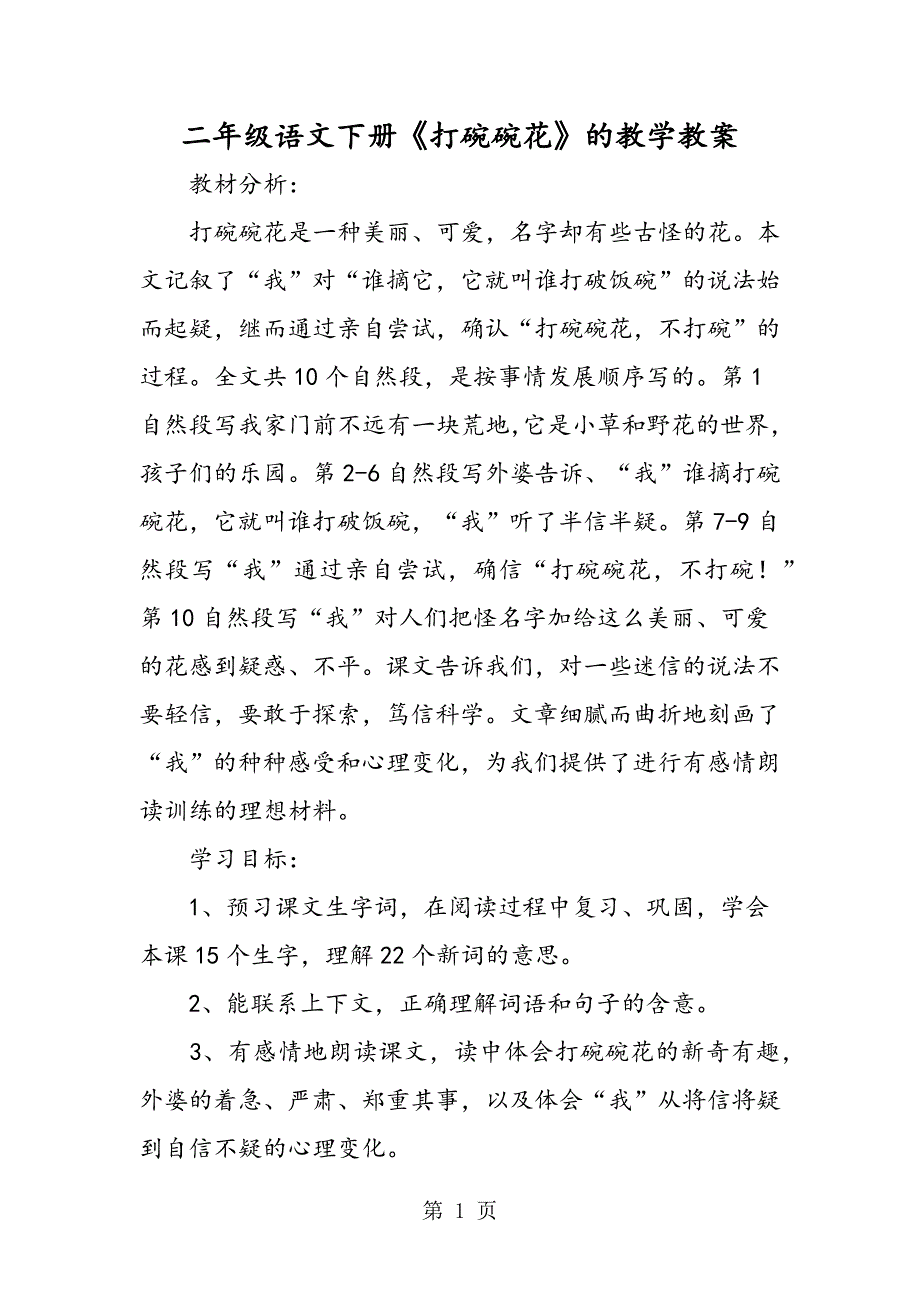 二年级语文下册《打碗碗花》的教学教案
教材分析：
打碗碗花是一种美丽、可爱，名字却有些古怪的花。本
文记叙了“我”对“谁摘它，它就叫谁打破饭碗”的说法始
而起疑，继而通过亲自尝试，确认“打碗碗花，不打碗”的
过程。全文共 10 个自然段，是按事情发展顺序写的。第 1
自然段写我家门前不远有一块荒地,它是小草和野花的世界，
孩子们的乐园。第 2-6 自然段写外婆告诉、“我”谁摘打碗
碗花，它就叫谁打破饭碗，“我”听了半信半疑。第 7-9 自
然段写“我”通过亲自尝试，确信“打碗碗花，不打碗！”
第 10 自然段写“我”对人们把怪名字加给这么美丽、可爱
的花感到疑惑、不平。课文告诉我们，对一些迷信的说法不
要轻信，要敢于探索，笃信科学。文章细腻而曲折地刻画了
“我”的种种感受和心理变化，为我们提供了进行有感情朗
读训练的理想材料。
学习目标：
1、预习课文生字词，在阅读过程中复习、巩固，学会
本课 15 个生字，理解 22 个新词的意思。
2、能联系上下文，正确理解词语和句子的含意。
3、有感情地朗读课文，读中体会打碗碗花的新奇有趣，
外婆的着急、严肃、郑重其事，以及体会“我”从将信将疑
到自信不疑的心理变化。
第 1 页